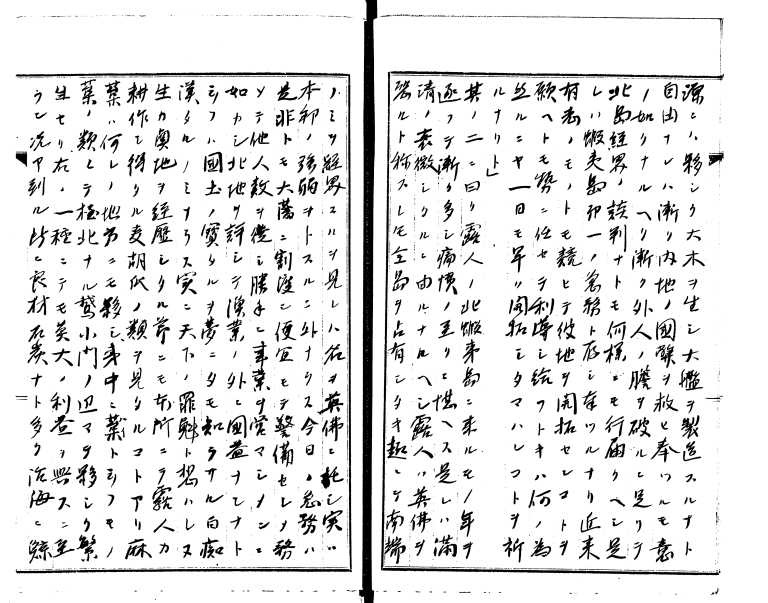 源ニハ夥シク大木ヲ生シ大艦ヲ製造スルナト
自由ナレハ漸々内地ノ國醜ヲ救ヒ奉ツルモ意
ノ如クナルヘク漸ク外人ノ膽ヲ破ルニ足リテ
北島經界ノ談判ナトモ何樣ニモ行届クヘシ是
レハ蝦夷島第一ノ急務ト存シ奉ツルナリ近来
有志ノモノトモ競ヒテ彼地ヲ開拓センコトヲ
願ヘトモ勢ニ任セテ利導シ給フトキハ何ノ為
シルニヤ一日モ早ク開拓シタマハレコトヲ祈
ルナリト
其ノ二ニ曰ク露人ノ北蝦夷島ニ来ルモノ年ヲ
逐フテ漸ク多シ痛憤ノ至リニ堪ヘス是レハ滿
清ノ衰微シタルニ由ルナルヘシ露人ハ英佛ヲ
防ルト称スレモ全島ヲ占有シタキ起ニテ南端
ノミヲ經界スルヲ見レハ名ヲ英佛ニ托シ實ハ
本邦ノ強弱ヲトスルニ外ナラス今日ノ急務ハ
是非トモ大藩ニ割渡シ便宜モテ警備セシメ務
メテ他人数ヲ優シ勝手ニ事業ヲ営マシメンニ
如カシ北地ヲ評シテ漁業ノ外ニ國益ナシナト
云フハ國土ノ寳タルヲ夢ニタモ知ラサル白痴
漢タルノミナラス実ニ天下ノ罪魁ト想ハレス
生カ奥地ヲ經歴シタル節ニモ本所ニテ露人カ
耕作シ得タル麦胡瓜ノ類ヲ見タルコトアリ麻
葉ハ何レノ地方ニモ夥シ東中ニ葉ト云フモノ
葉ノ類ヒテ極北ナル鵞小門ノ辺マテ夥シク繁
生セリ右ノ一種ニテモ莫大ノ利益ヲ興スニ至
ラン况ヤ到ル処ニ良材石炭ナト多ク沿海ニ鯨